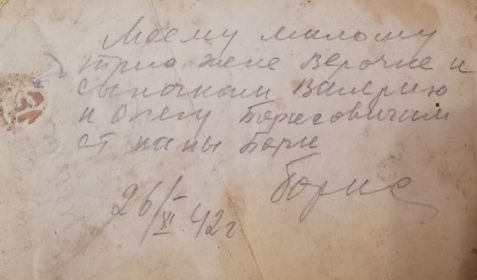 Моему милому
трио жене Верочке и
сыночкам Валерию
и Олегу Борисовичам
от папы Бори
Борис
26/XI 42г